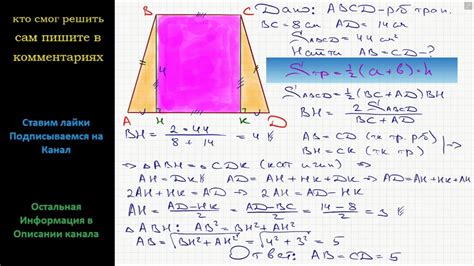 кто смог решить
сам пишите в
комментариях
Ставим лайки
Подписываемся на
Канал
Остальная
Информация в
Описании канала
B C
4
A H K D
Дано: ABCD - р/б трап.
BC = 8 см AD = 14 см
S_ABCD = 44 см²
Найти AB = CD - ?
S_тр = 1/2 (a + b) · h
S_ABCD = 1/2 (BC + AD) BH
BH = 2 S_ABCD / (BC + AD)
BH = 2 · 44 / (8 + 14) = 4
AB = CD (тк тр. р/б)
BH = CK (тк тр)
=> △ABH = △CDK (кат и гип) =>
AH = DK AD = AH + HK + DK => AD = AH + HK + AH
2AH + HK = AD => 2AH = AD - HK
AH = (AD - HK) / 2 = (AD - BC) / 2 = (14 - 8) / 2 = 3
△ABH: AB² = BH² + AH²
AB = √(BH² + AH²) = √(4² + 3²) = 5
Ответ: AB = CD = 5